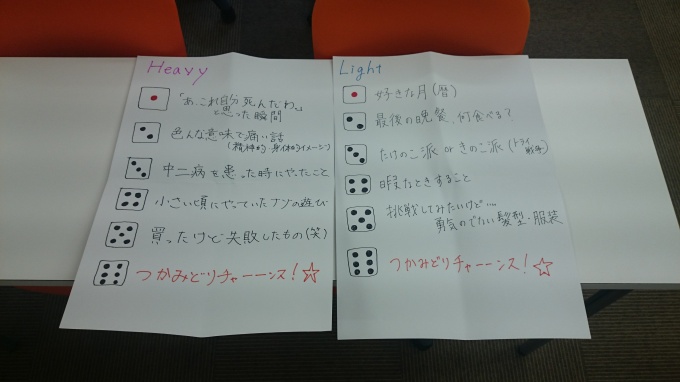 Heavy
「あ、これ自分死んだわ。」
と思った瞬間
色んな意味で痛い話
(精神的・身体的イメージ)
中二病を患った時にやったこと
小さい頃にやっていたナゾの遊び
買ったけど失敗したもの(笑)
つかみどりチャーーンス!☆
Light
好きな月(暦)
最後の晩餐、何食べる?
たけのこ派 or きのこ派(トライ
暇なときすること
挑戦してみたいけど…
勇気のでない髪型・服装
つかみどりチャーーンス!☆